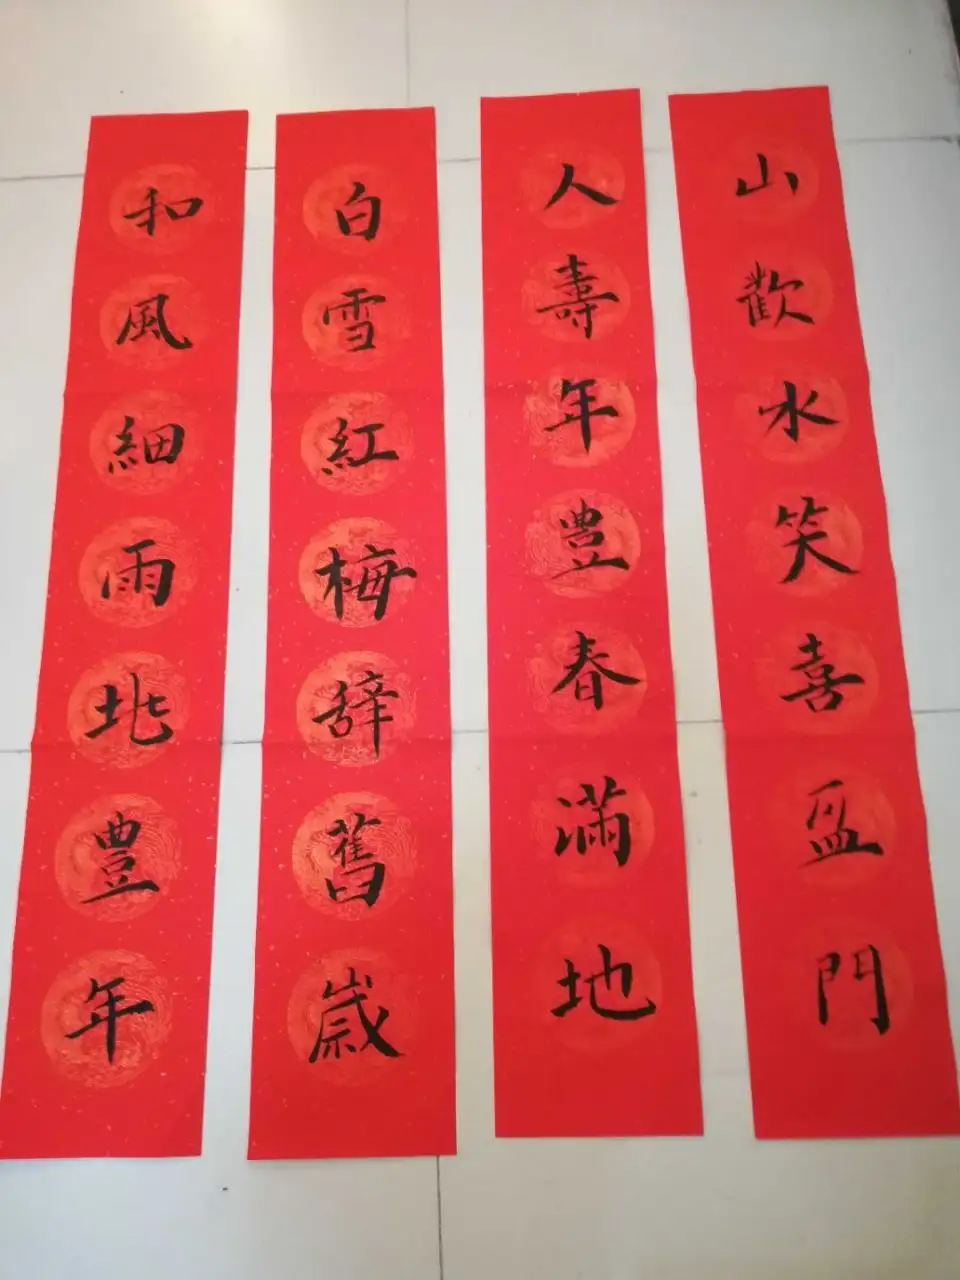 山歡水笑喜盈門
人壽年豊春滿地
白雪紅梅辭舊歲
和風細雨兆豊年